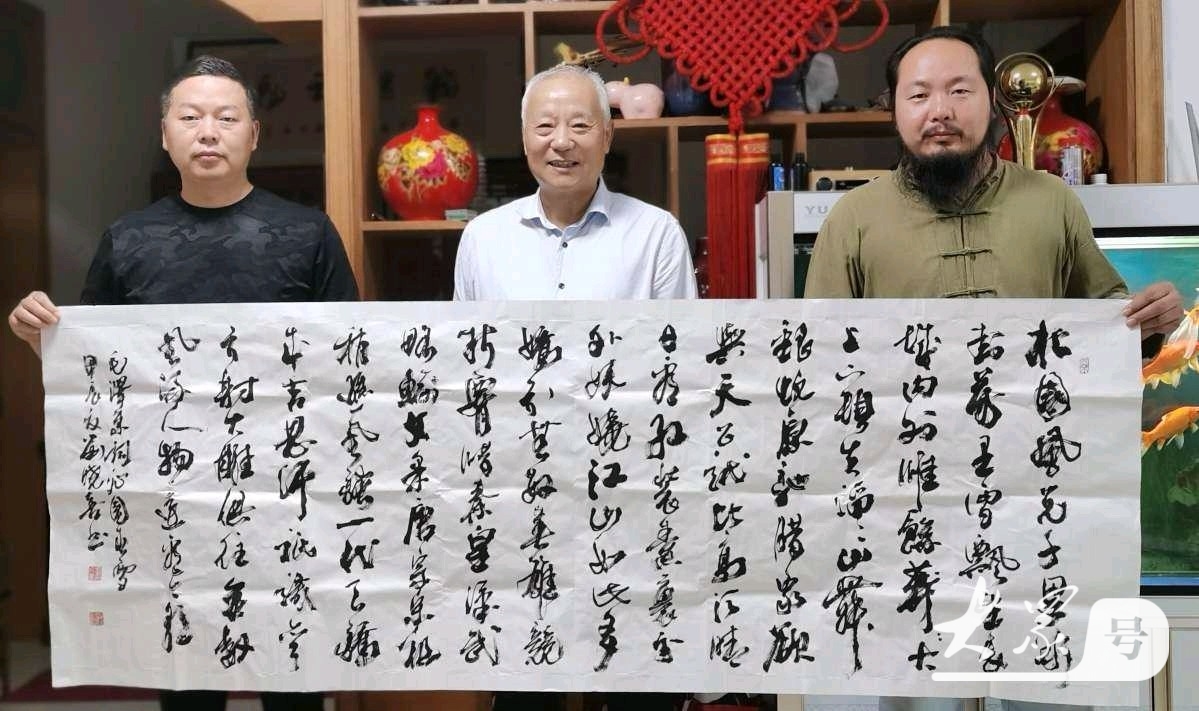 北國風光千里冰
封萬里雪飄望長
城内外惟餘莽〻大
上下頓失滔〻山舞
銀蛇原馳腊象欲
與天公試比高須晴
日看紅裝素裹分
外妖嬈江山如此多
嬌引無數英雄競
折腰惜秦皇漢武
略輸文采唐宗宋祖
稍遜風騷一代天驕
成吉思汗衹識彎
弓射大雕俱往矣數
風流人物還看今朝
毛澤東詞沁園春雪
甲辰夏
書
YU
大家号